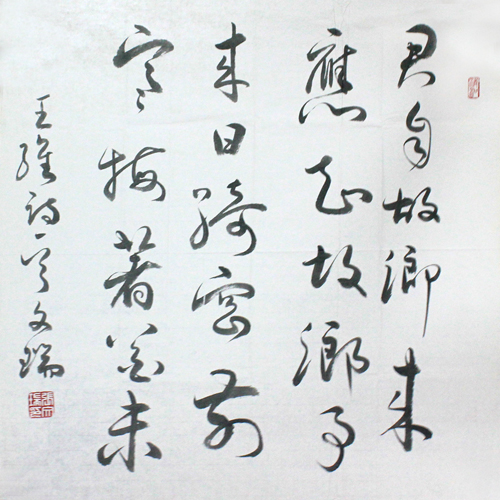 君自故鄉来
應知故鄉事
来日綺窗前
寒梅著花未
王維詩一首文瑞